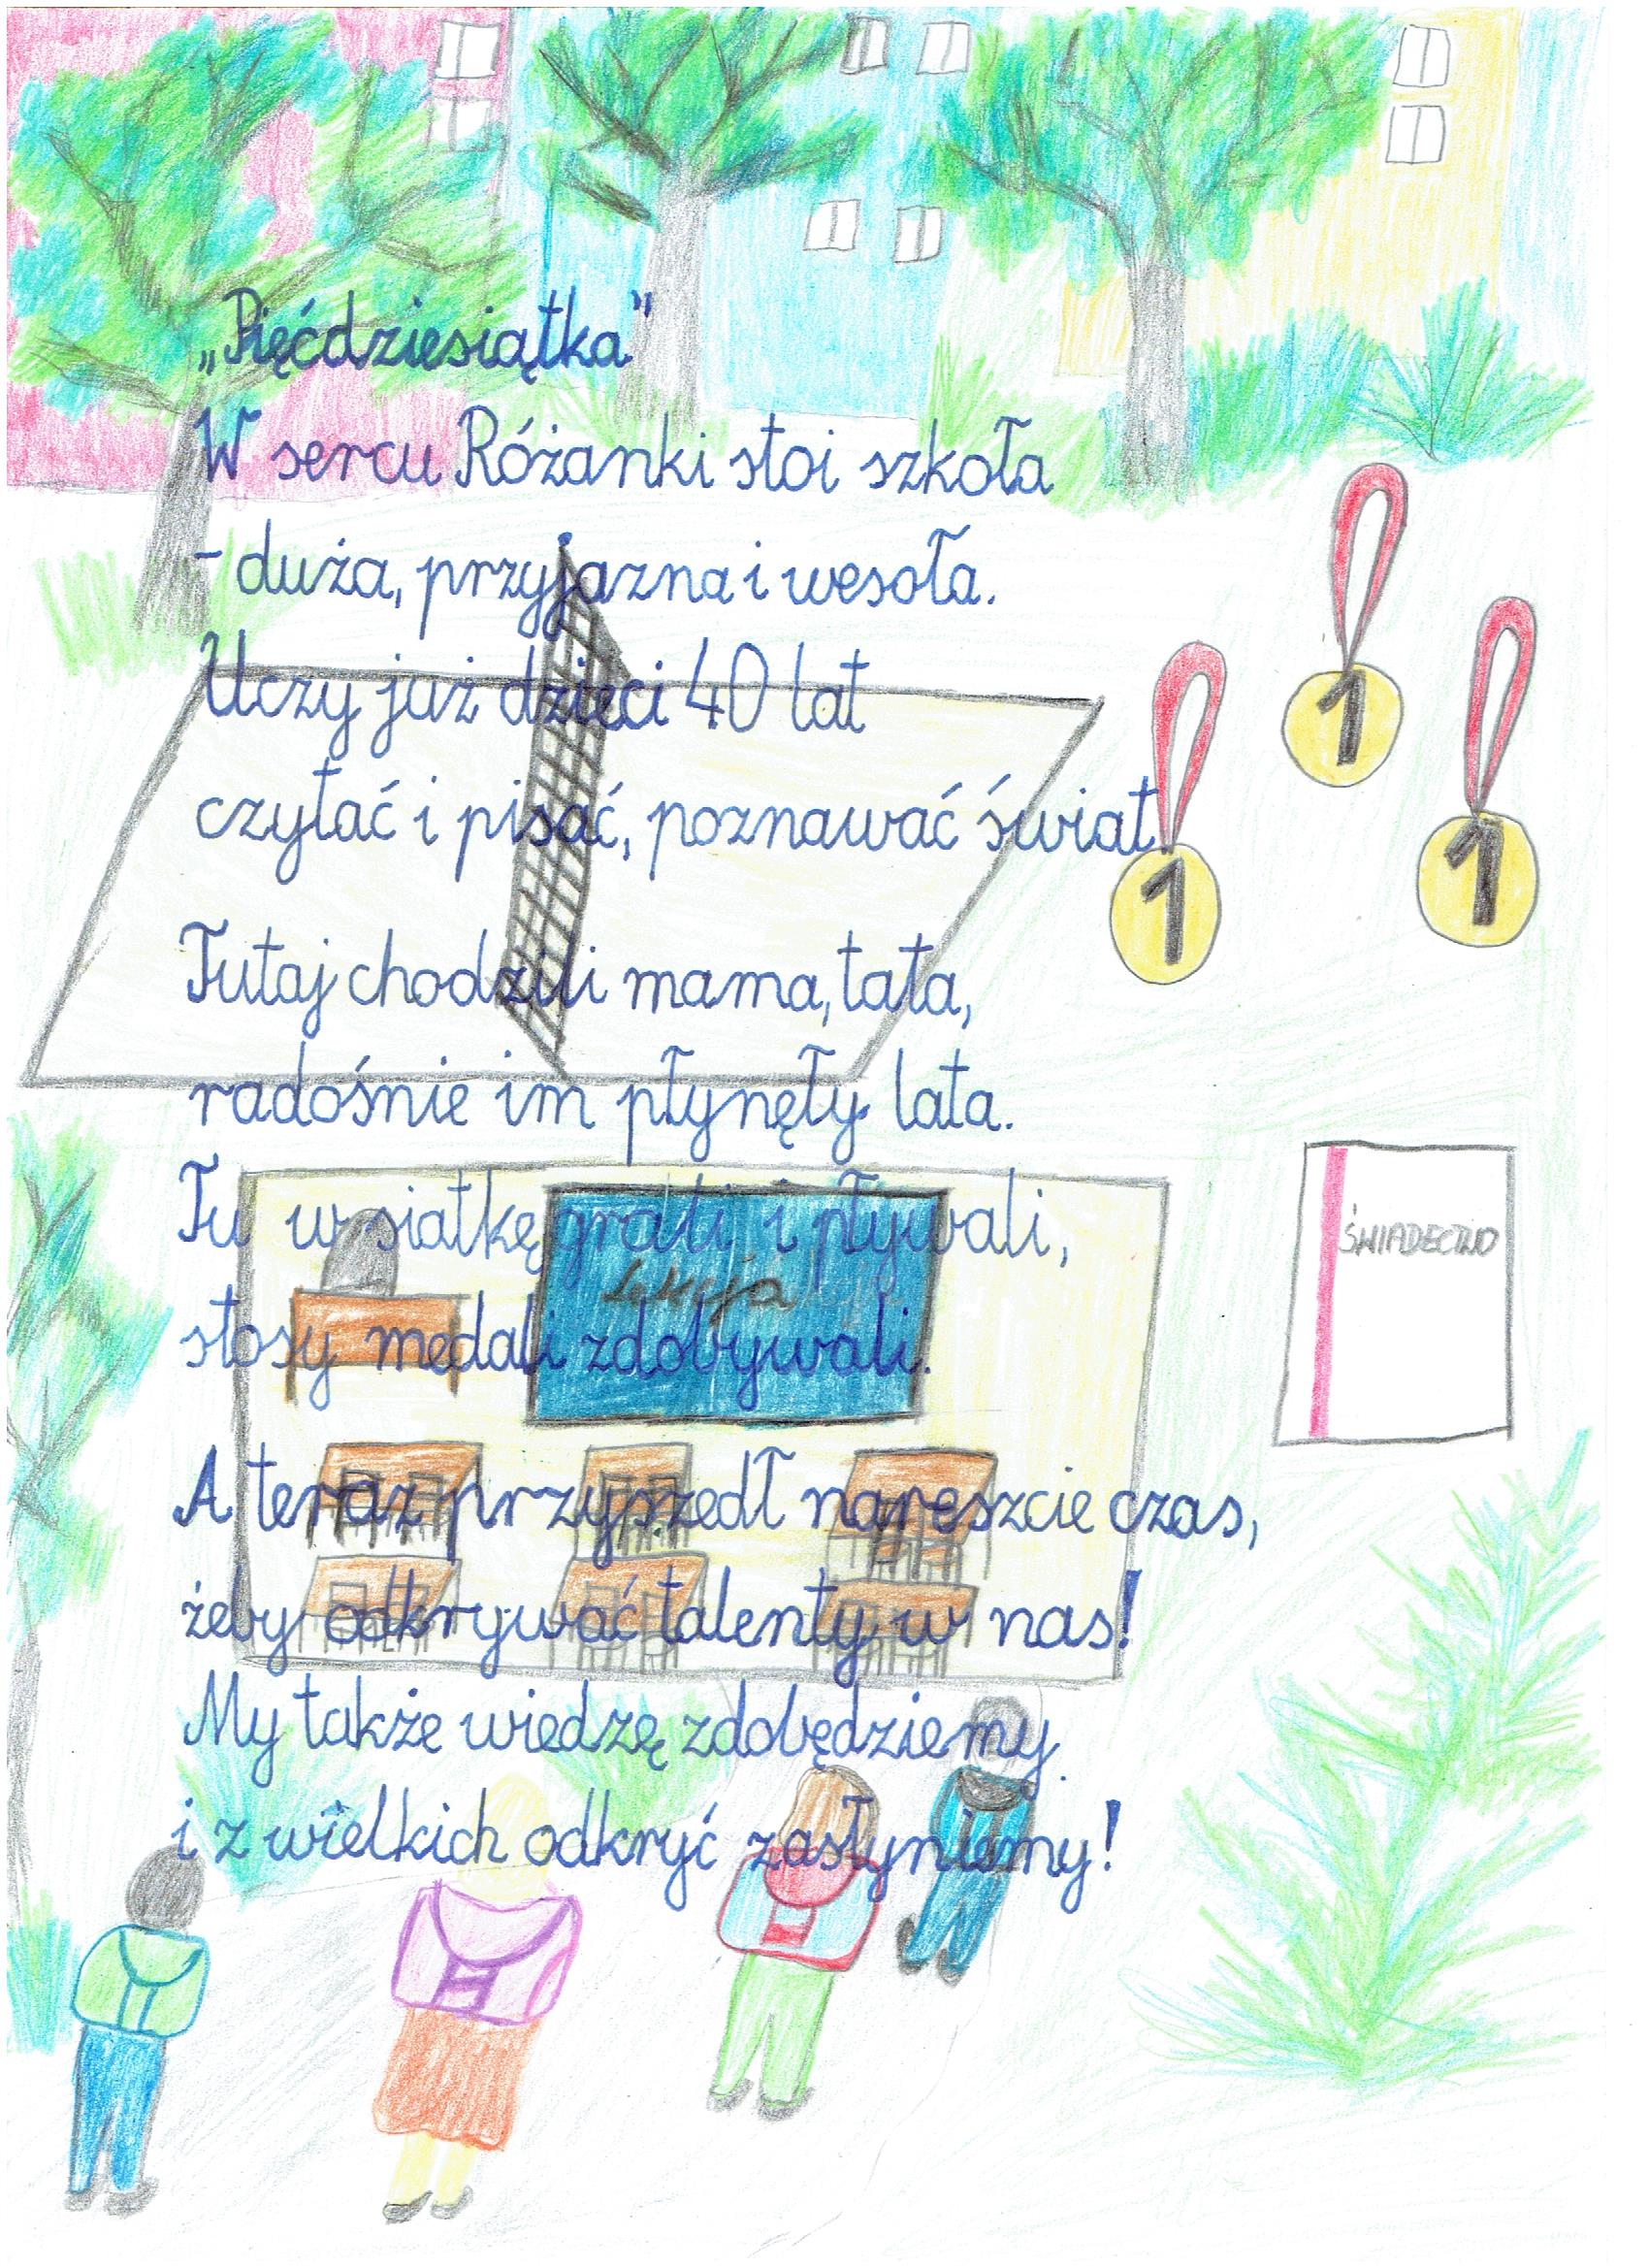 „Pięćdziesiątka"
W sercu Różanki stoi szkoła
- duża, przyjazna i wesoła.
Uczy już dzieci 40 lat
czytać i pisać, poznawać świat.
1
1
1
Tutaj chodzili mama, tata,
radośnie im płynęły lata.
Tu w siatkę grali i pływali,
ŚWIADECTWO
Lekcja
stosy medali zdobywali.
A teraz przyszedł nareszcie czas,
żeby odkrywać talenty w nas!
My także wiedzę zdobędziemy
i z wielkich odkryć zasłyniemy!